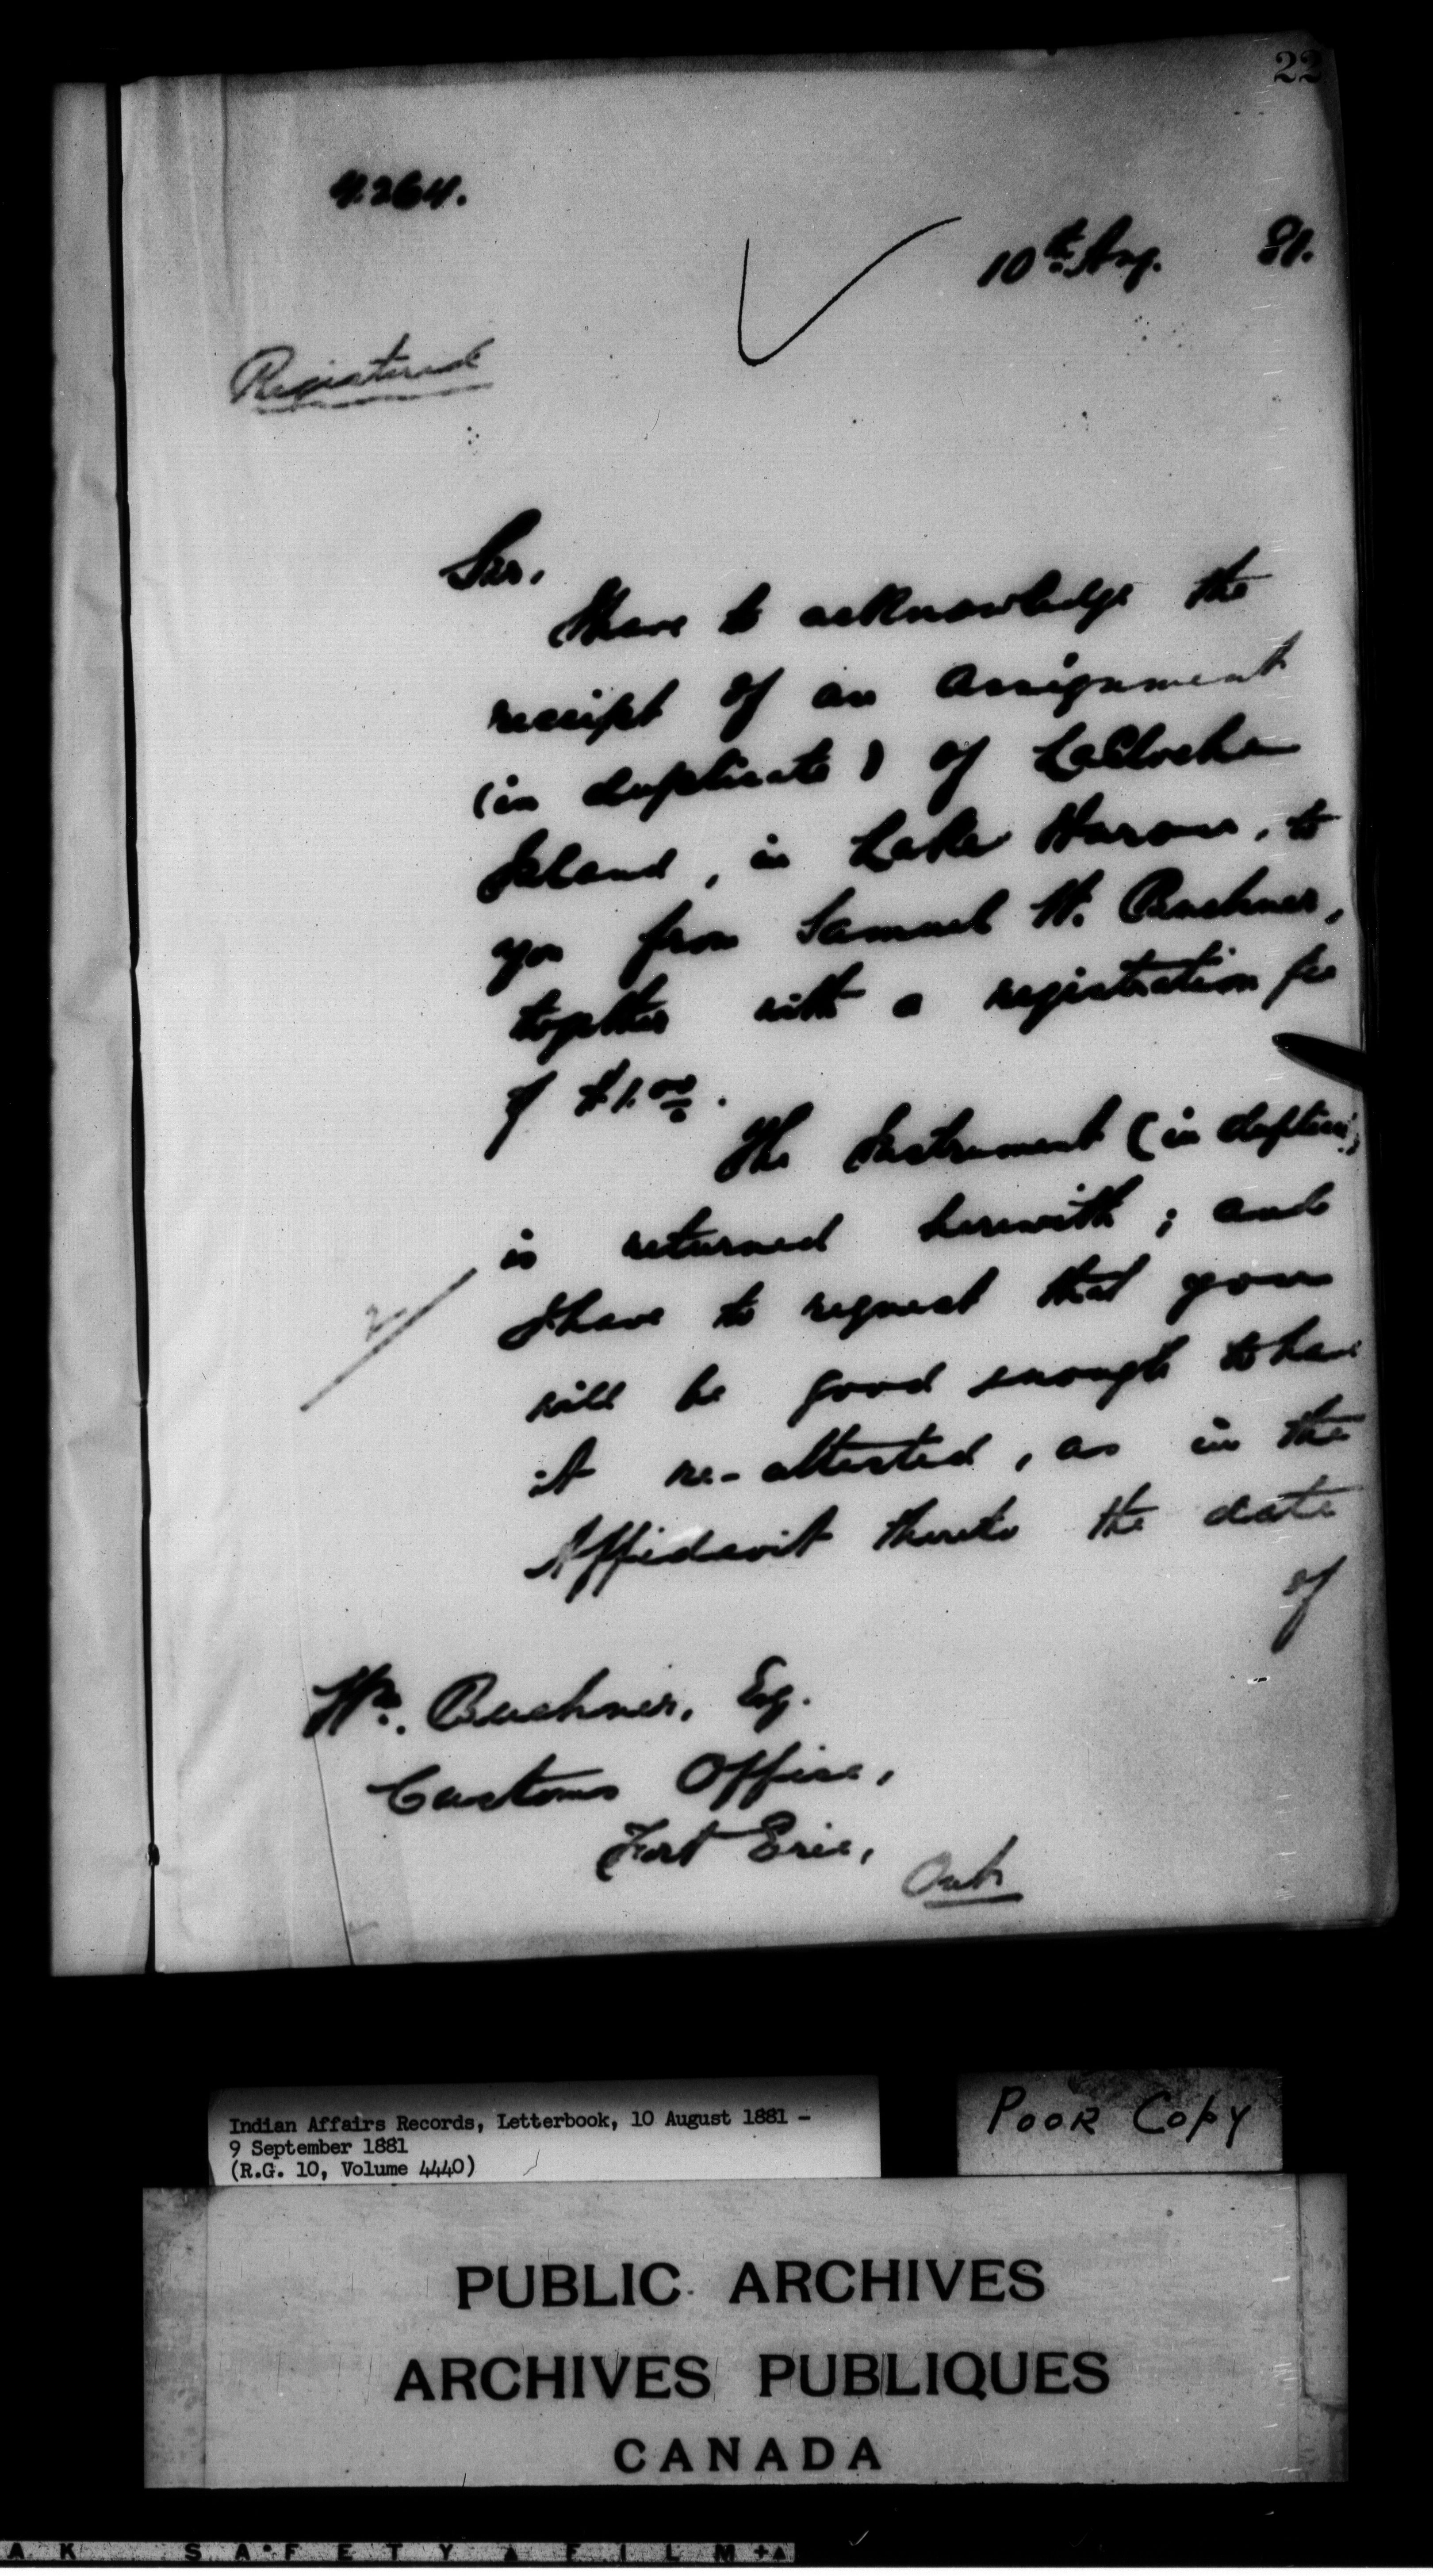 22
4264.
10th Aug. 81.
Registered
Sir,
I have to acknowledge the
receipt of an assignment
(in duplicate) of LaCloche
Island, in Lake Huron, to
you from Samuel W. Buchner,
together with a registration fee
of $1.00.
The Instrument (in duplica
is returned herewith; and
I have to request that you
will be good enough to have
it re-attested, as in the
Affidavit thereto the date
of
Wm. Buchner, Esq.
Customs Office,
Fort Erie,
Ont.
Indian Affairs Records, Letterbook, 10 August 1881 -
9 September 1881
(R.G. 10, Volume 4440)
POOR COPY
PUBLIC ARCHIVES
ARCHIVES PUBLIQUES
CANADA
AK SAFETY FILM